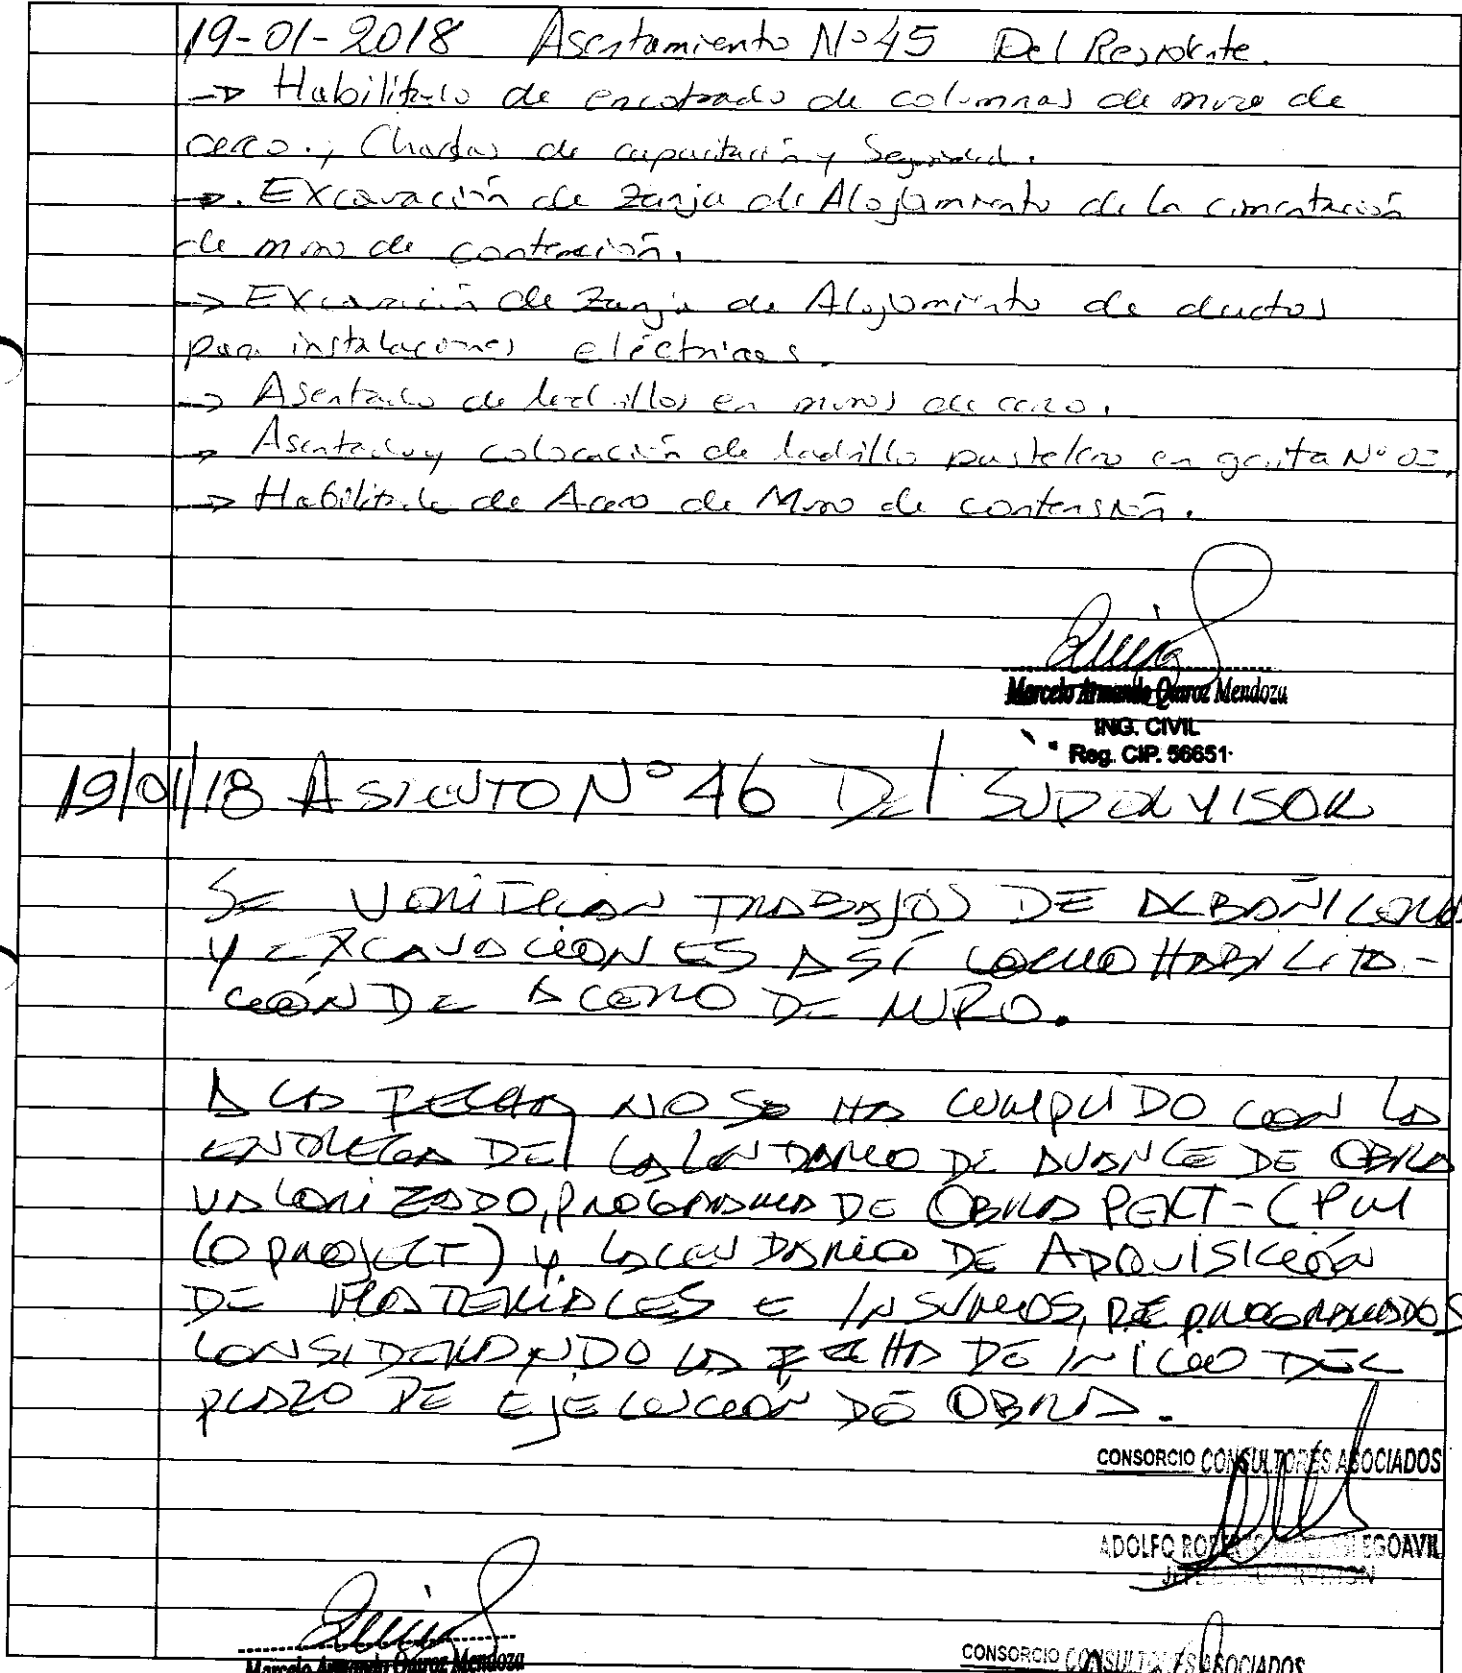 19-01-2018 Asentamiento N° 45 Del Residente.
→ Habilitado de encofrado de columnas de muro de
cerco., Charlas de capacitación y Seguridad.
→. Excavación de zanja de Alojamiento de la cimentación
de muro de contención.
→ Excavación de zanja de Alojamiento de ductos
para instalaciones eléctricas.
→ Asentado de ladrillos en muros de cerco.
→ Asentado y colocación de ladrillo pastelero en garita N°
→ Habilitado de Acero de Muro de contensión.
Marcelo Armando Quiroz Mendoza
ING. CIVIL
Reg. CIP. 56651
19/01/18 ASIENTO N° 46 Del SUPERVISOR
SE VERIFICAN TRABAJOS DE ALBAÑILERIA
Y EXCAVACIONES ASÍ COMO HABILITA-
CIÓN DE ACERO DE MURO.
A LA FECHA NO SE HA CUMPLIDO CON LA
ENTREGA DEL CALENDARIO DE AVANCE DE OBRA
VALORIZADO, PROGRAMA DE OBRA PERT-CPM
(O PROJECT) Y CALENDARIO DE ADQUISICIÓN
DE MATERIALES E INSUMOS, REPROGRAMADOS
CONSIDERANDO LA FECHA DE INICIO DEL
PLAZO DE EJECUCIÓN DE OBRA.
CONSORCIO CONSULTORES ASOCIADOS
ADOLFO ROBERTO EGOAVIL
JEFE DE SUPERVISION
Marcelo Armando Quiroz Mendoza
CONSORCIO CONSULTORES ASOCIADOS